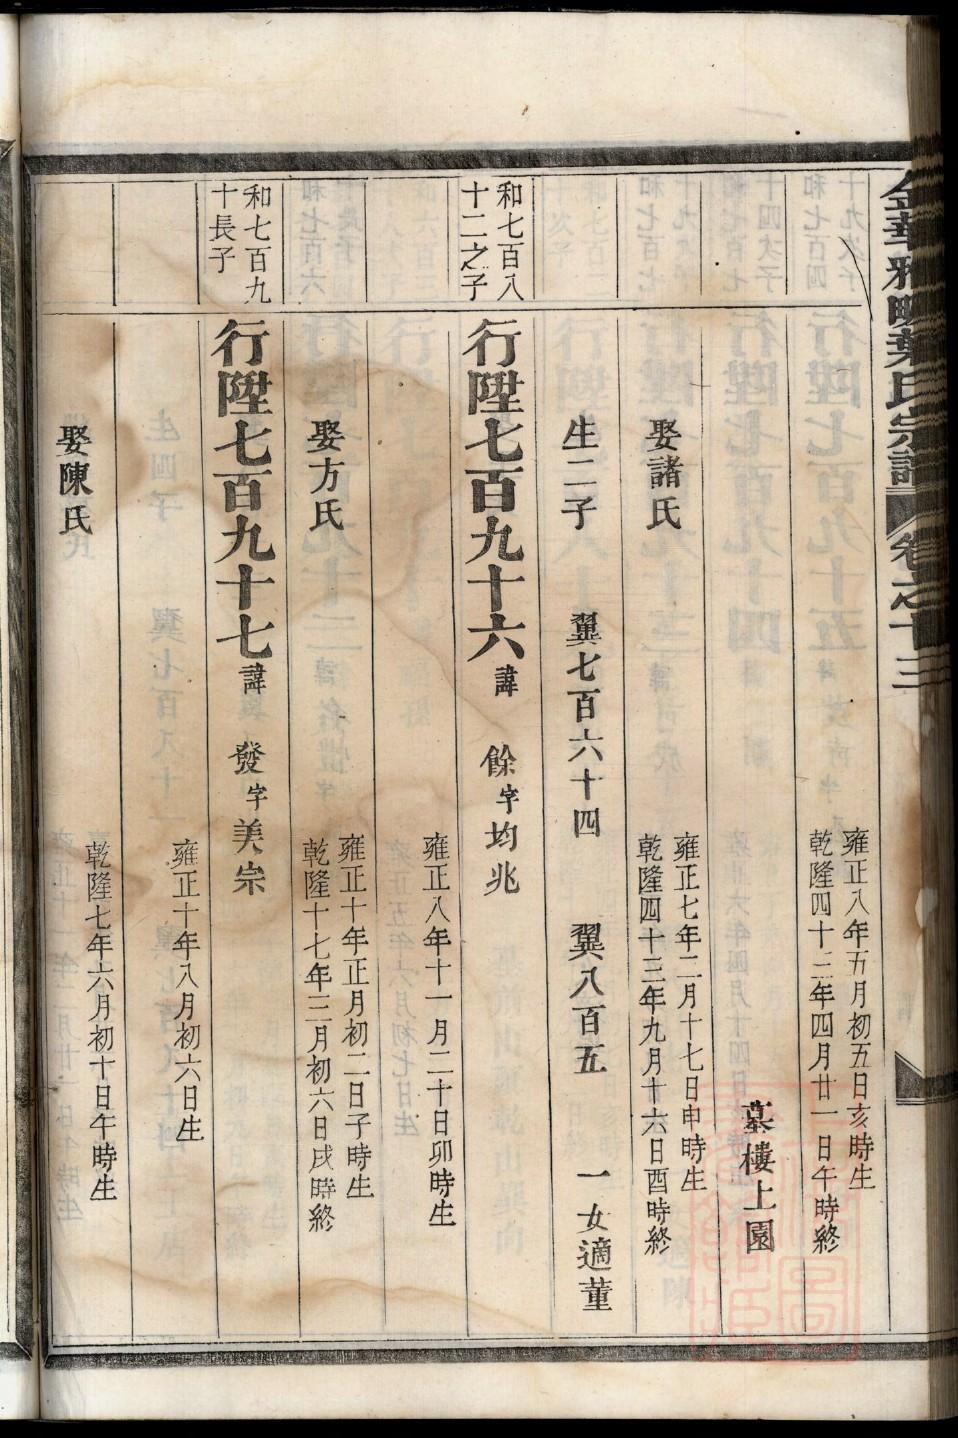 金華雅畈葉氏宗譜 卷之十三
雍正八年五月初五日亥時生
乾隆四十三年四月廿一日午時終
墓樓上園
娶諸氏
雍正七年二月十七日申時生
乾隆四十三年九月廿六日酉時終
生二子 翼七百六十四 翼八百五 一女適董
和七百八
十二之子
行陞七百九十六 諱 餘 字 均兆
雍正八年十一月二十日卯時生
娶方氏
雍正十年正月初二日子時生
乾隆十七年三月初六日戌時終
和七百九
十長子
行陞七百九十七 諱 發 字 美宗
雍正十年八月初六日生
娶陳氏
乾隆七年六月初十日午時生